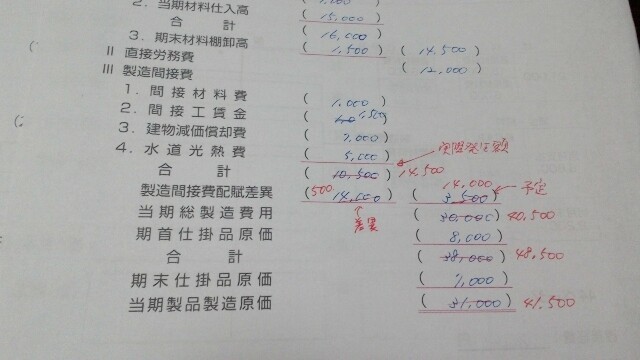 2. 当期材料仕入高
合計 ( 15,000 )
( 16,000 )
3. 期末材料棚卸高 ( 1,500 ) ( 14,500 )
II 直接労務費 ( 12,000 )
III 製造間接費
1. 間接材料費 ( 1,000 )
2. 間接工賃金 ( 1,500 )
3. 建物減価償却費 ( 7,000 )
4. 水道光熱費 ( 5,000 ) 実際発生額
合計 ( 10,500 ) 14,500
14,000 予定
製造間接費配賦差異 (500 14,000 ) ( 3,500 )
当期総製造費用 差異 ( 30,000 ) 40,500
期首仕掛品原価 ( 8,000 )
合計 ( 38,000 ) 48,500
期末仕掛品原価 ( 7,000 )
当期製品製造原価 ( 31,000 ) 41,500